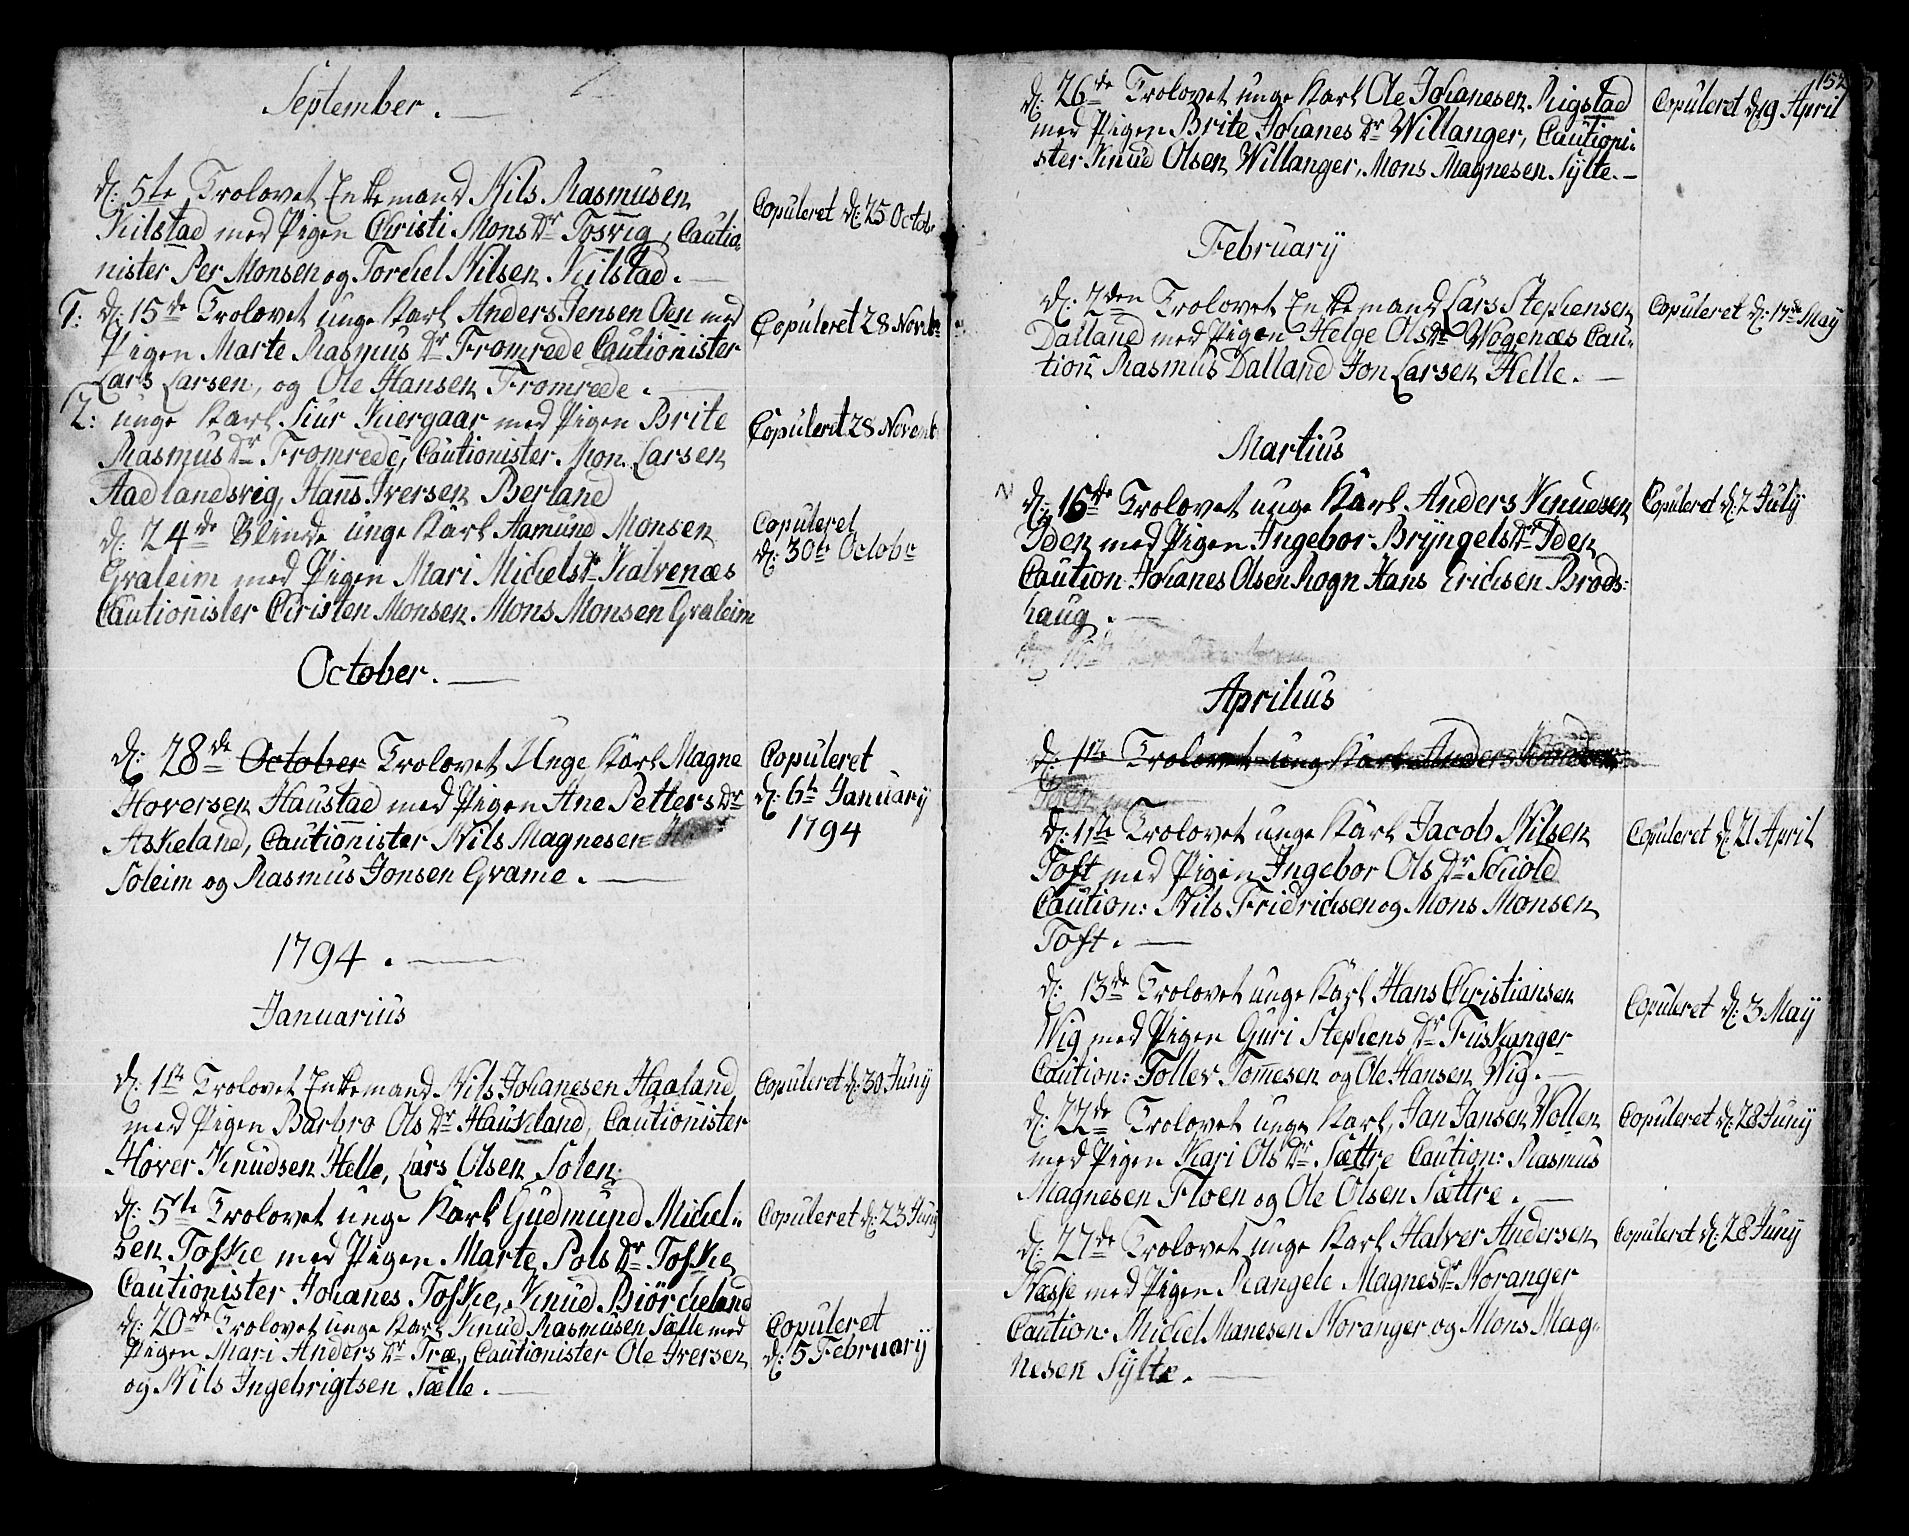 September.
d: 5te Trolovet Enkemand Nils Rasmusen
Kilstad med Pigen Christi Mons Dr Tosvig, Cautio„
nister Per Monsen og Torchel Nilsen Kilstad.
Copuleret d: 25 Octob
1: d: 15de Trolovet unge Karl Anders Jensen Oen med
Pigen Marte Rasmus Dr Fromrede Cautionister
Lars Larsen, og Ole Hansen Fromrede.
Copuleret 28 Novbr
2: unge Karl Siur Kiergaar med Pigen Brite
Rasmus Dr Fromrede, Cautionister Mon. Larsen
Aadlandsvig, Hans Iversen Berland
Copuleret 28 Novemb
d: 24de Blinde unge Karl Aamund Monsen
Graleim med Pigen Mari Michelsdr Kalvenæs
Cautionister Christen Monsen. Mons Monsen Graleim
Copuleret
d: 30te Octobr
October.
d: 28de October Trolovet Unge Karl Magne
Hoversen Haustad med Pigen Ane Petters Dr
Askeland, Cautionister Nils Magnesen
Soleim og Rasmus Jonsen Grame.
Copuleret
d: 6te January
1794
1794.
Januarius
d: 1ste Trolovet Enkemand Nils Johanesen Haaland
med Pigen Barbro Ols Dr Haukland, Cautionister
Hover Knudsen Helle, Lars Olsen Solen
Copuleret d: 30 Juny
d: 5te Trolovet unge Karl Gudmund Michel„
sen Toske med Pigen Marte Pols Dr Toske
Cautionister Johanes Toske, Knud Biörcheland
Copuleret d: 23 Juny
d: 20de Trolovet unge Karl Knud Rasmusen Sælle med
Pigen Mari Anders Dr Træ, Cautionister Ole Iversen
og Nils Ingebrigtsen Sælle.
Copuleret
d: 5 February
152
d: 26de Trolovet unge Karl Ole Johanesen Rigstad
med Pigen Brite Johanes Dr Willanger, Cautioni„
ster Knud Olsen Willanger, Mons Magnesen Sylte.
Copuleret d: 19 April
February
d: 2den Trolovet Enkemand Lars Stephensen
Dalland med Pigen Helge Olsdr Wogenæs Cau„
tion Rasmus Dalland Jon Larsen Helle.
Copuleret d: 17de May
Martius
d: 16de Trolovet unge Karl Anders Knuesen
Iden med Pigen Ingebor Bryngels Dr Iden
Caution Johanes Olsen Rogn Hans Erichsen Brods:
haug.
Copuleret d: 2 July
d: 16de
Aprilius
d: 1ste Trolovet ung Karl Anders Knudsen
Iden m
d: 11te Trolovet unge Karl Jacob Nilsen
Toft med Pigen Ingebor Ols Dr Sciold
Caution: Nils Fridrichsen og Mons Monsen
Toft.
Copuleret d: 21 April
d: 13de Trolovet unge Karl Hans Christiansen
Wig med Pigen Guri Stephens Dr Fuskanger
Caution: Tollev Tomesen og Ole Hansen Wig.
Copuleret d: 3 May
d: 22de Trolovet unge Karl Jan Jansen Wollen
med Pigen Kari Ols Dr Sættre Caution: Rasmus
Magnesen Floen og Ole Olsen Sættre.
Copuleret d: 28 Juny
d: 27de Trolovet unge Karl Halver Andersen
Næsse med Pigen Rangele Magnesdr Noranger
Caution: Michel Manesen Noranger og Mons Mag„
nesen Sylte.
Copuleret d: 28 Juny